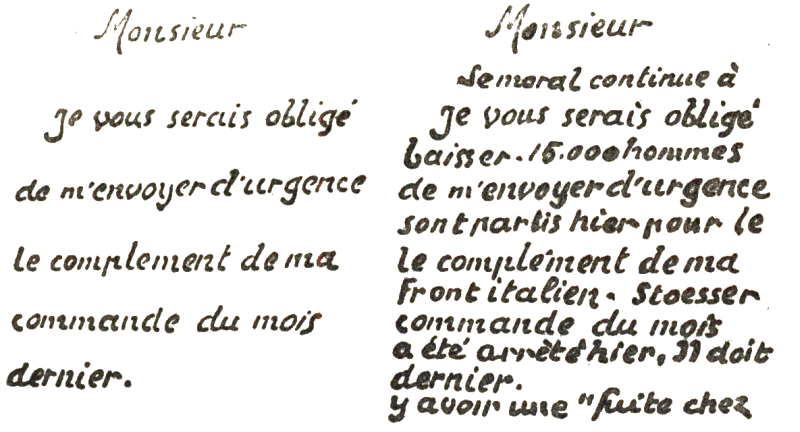 Monsieur
Je vous serais obligé
de m'envoyer d'urgence
le complement de ma
commande du mois
dernier.
Monsieur
Le moral continue à
Je vous serais obligé
baisser. 15.000 hommes
de m'envoyer d'urgence
sont partis hier pour le
le complément de ma
Front italien. Stoesser
commande du mois
a été arrêté hier, Il doit
dernier.
y avoir une "fuite chez